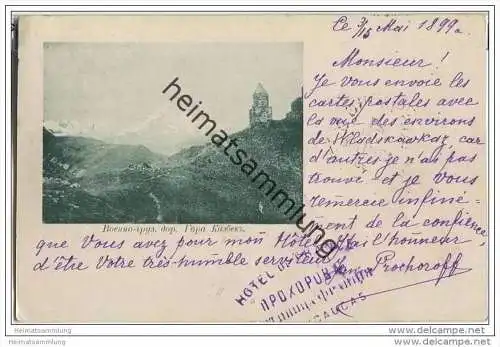 Le 3/15 Mai 1899.
Monsieur!
Je Vous envoie les
cartes postales avec
la vue des environs
de Wladskawkaz, car
d'autres je n'ai pas
trouvé et je Vous
remercie infini-
ment de la confience
Военно-груз. дор. Гора Казбекъ.
que Vous avez pour mon Hôtel. J'ai l'honneur
d'être Votre très-humble serviteur Prochoroff
HOTEL DE
ПРОХОРОВА
CAUCAS
heimatsammlung.de
Heimatsammlung
https://www.heimatsammlung.de
Heimatsammlung
https://www.heimatsammlung.de